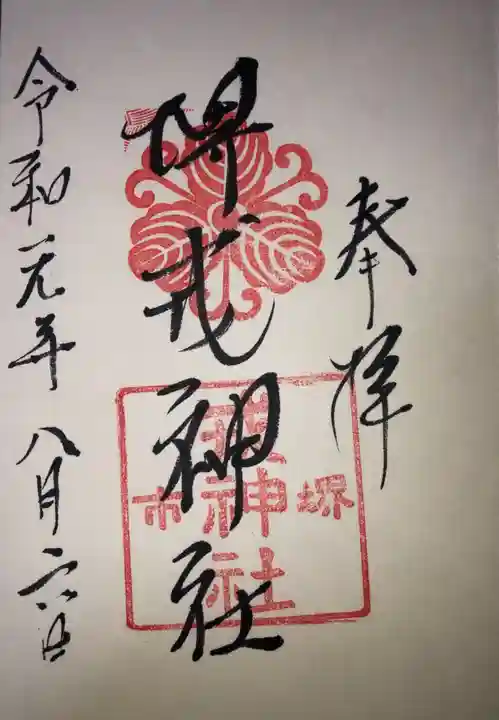 奉拝
堺戎神社
令和元年八月六日
堺
神社
市